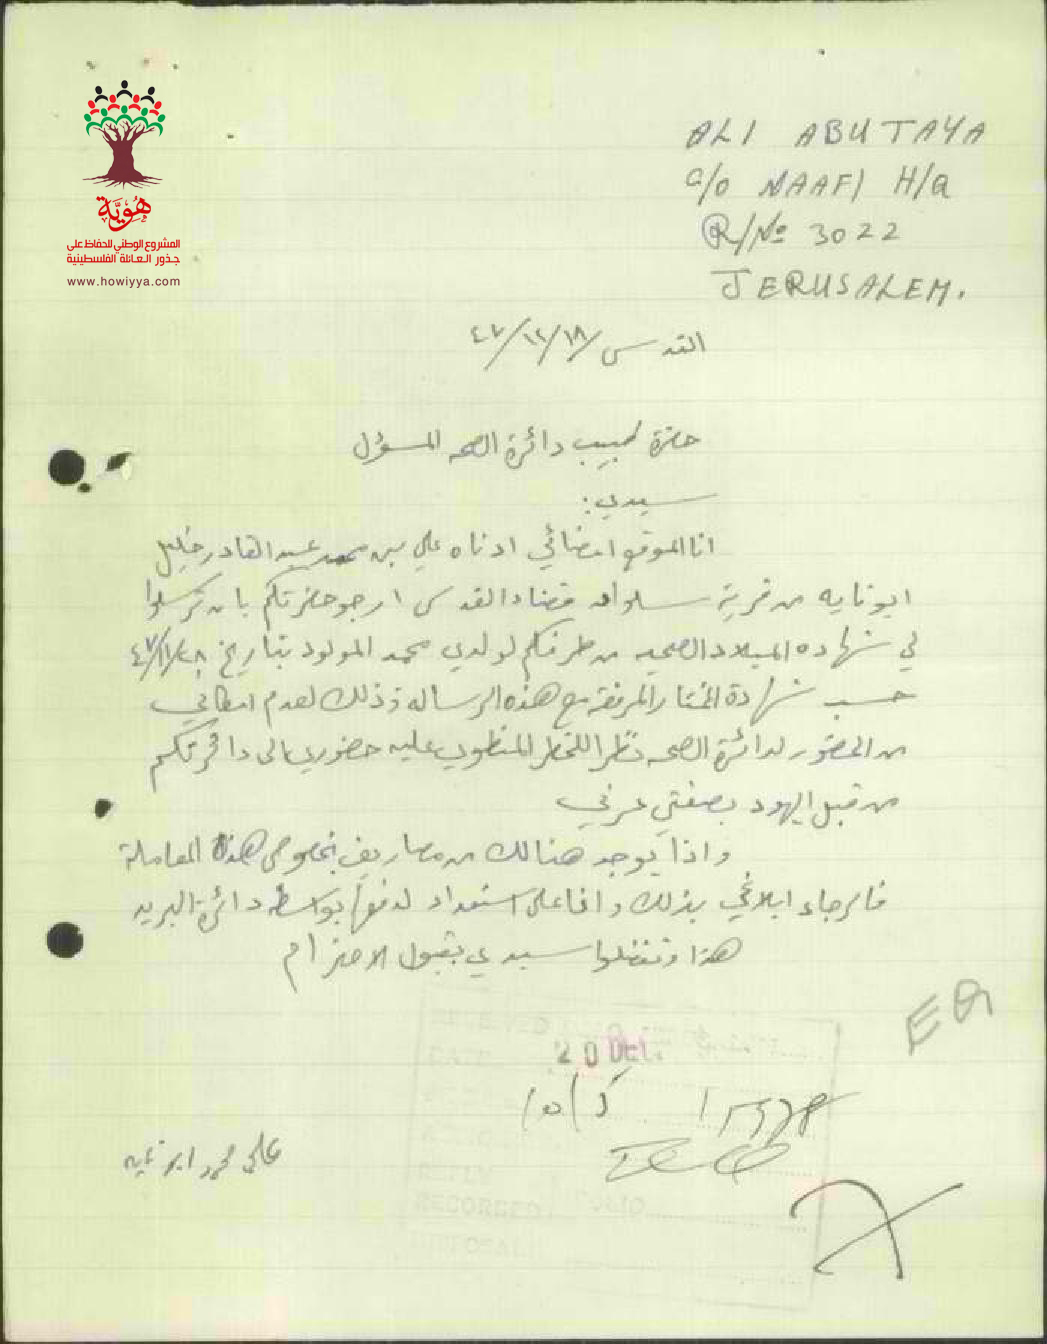 هُوِيَّة
المشروع الوطني للحفاظ على
جذور العائلة الفلسطينية
www.howiyya.com
ALI ABUTAYA
C/O NAAFI H/Q
R/No 3022
JERUSALEM.
القدس ١٨/١٢/٤٧
حضرة طبيب دائرة الصحه المسؤل
سيدي:
انا الموقع امضائي ادناه علي بن محمد عبد القادر خليل
ابو تايه من قرية سلوان قضاء القدس ارجو حضرتكم بان ترسلوا
لي شهاده الميلاد الصحيه من طرفكم لولدي محمد المولود بتاريخ
حسب شهادة المختار المرفقة مع هذه الرساله وذلك لعدم امكاني
من الحضور لدائرة الصحه نظرا للخطر المنطوي عليه حضوري الى دائرتكم
من قبل اليهود بصفتي عربي
واذا يوجد هنالك من مصاريف بخصوص هذه المعاملة
فالرجاء ابلاغي بذلك وانا على استعداد لدفعها بواسطة دائرة البريد
هذا وتفضلوا سيدي بقبول الاحترام
20 DEC.
علي محمد ابو تايه